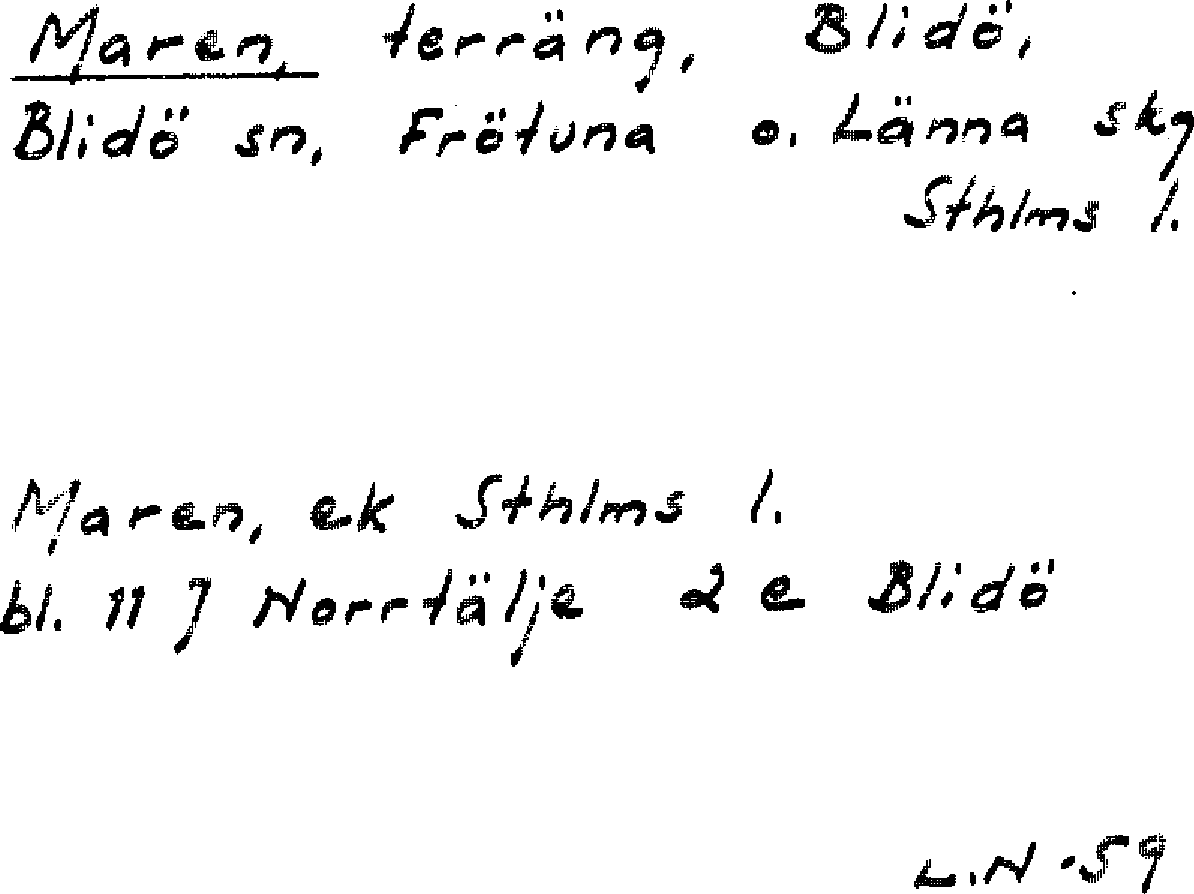 Maren, terräng, Blidö,
Blidö sn, Frötuna o. Länna skg
Sthlms l.
Maren, ek Sthlms l.
bl. 11 J Norrtälje 2 e Blidö
L.N -59